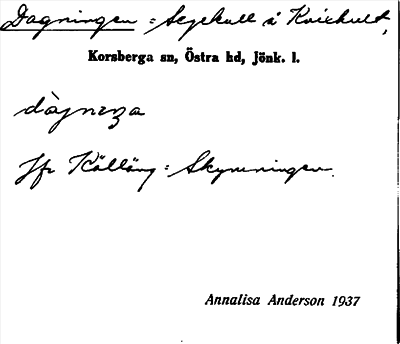 Dagningen = Segekull i Kvickult,
Korsberga sn, Östra hd, Jönk. l.
Jfr Källäng = Skymningen.
Annalisa Anderson 1937